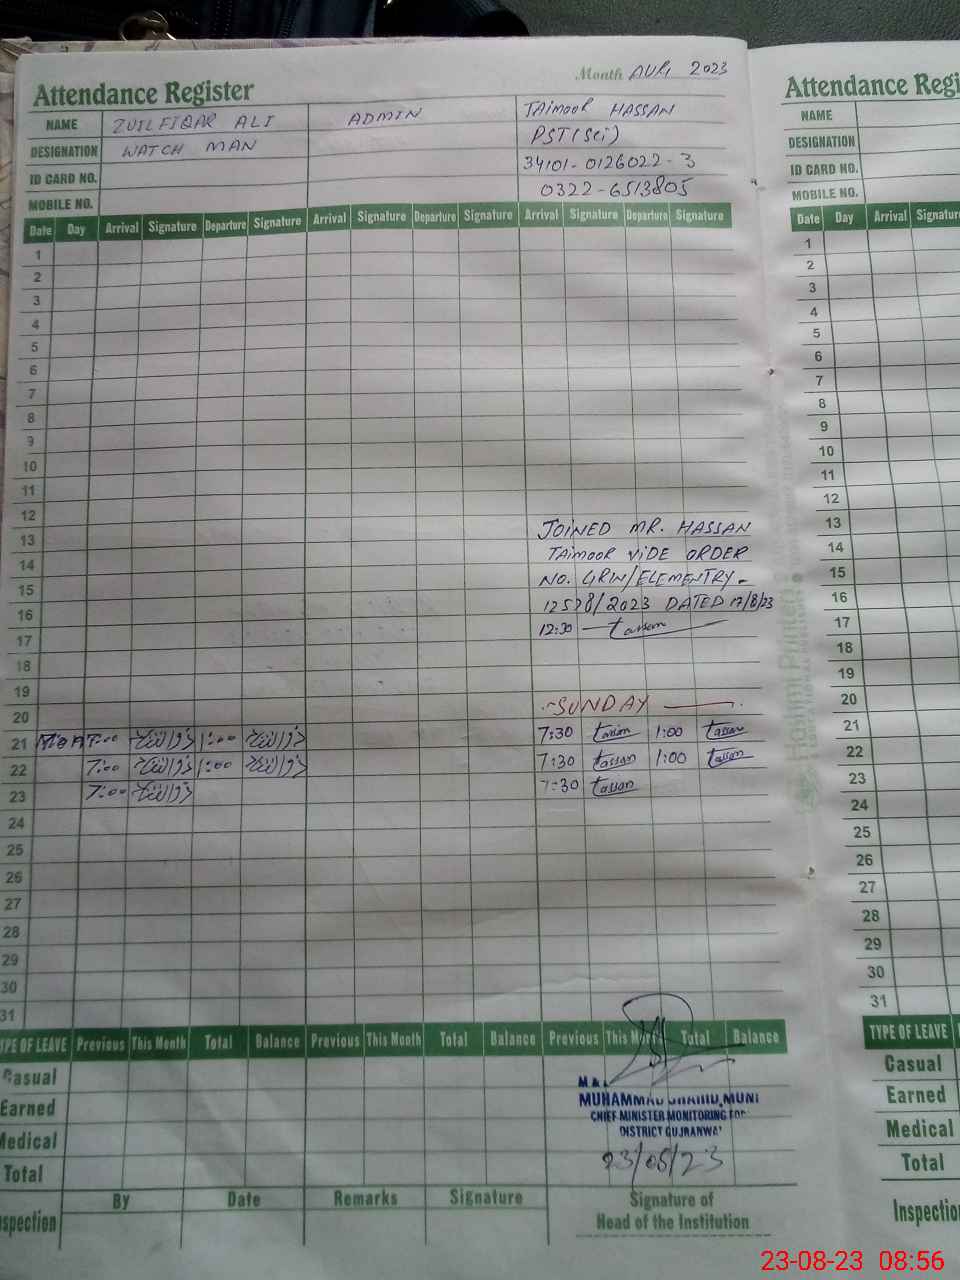 Attendance Register
Month AUG 2023
NAME ZUILFIQAR ALI ADMIN TAIMOOR HASSAN
DESIGNATION WATCH MAN PST(Sci)
ID CARD NO. 34101-0126022-3
MOBILE NO. 0322-6513805
Date Day Arrival Signature Departure Signature Arrival Signature Departure Signature Arrival Signature Departure Signature
1
2
3
4
5
6
7
8
9
10
11
12
13 JOINED MR. HASSAN
14 TAIMOOR VIDE ORDER
15 NO. GRW/ELEMENTRY-
16 12578/2023 DATED 17/8/23
17 12:30
18
19
20 SUNDAY
21 7:00 1:00 7:30 1:00
22 7:00 1:00 7:30 1:00
23 7:00 7:30
24
25
26
27
28
29
30
31
TYPE OF LEAVE Previous This Month Total Balance Previous This Month Total Balance Previous This Month Total Balance
Casual
Earned
Medical
Total
M &
MUHAMMAD
CHIEF MINISTER MONITORING
DISTRICT
23/08/23
By Date Remarks Signature
Signature of
Head of the Institution
Attendance
NAME
DESIGNATION
ID CARD NO.
MOBILE NO.
Date Day Arrival
1
2
3
4
5
6
7
8
9
10
11
12
13
14
15
16
17
18
19
20
21
22
23
24
25
26
27
28
29
30
31
TYPE OF LEAVE
Casual
Earned
Medical
Total
23-08-23 08:56